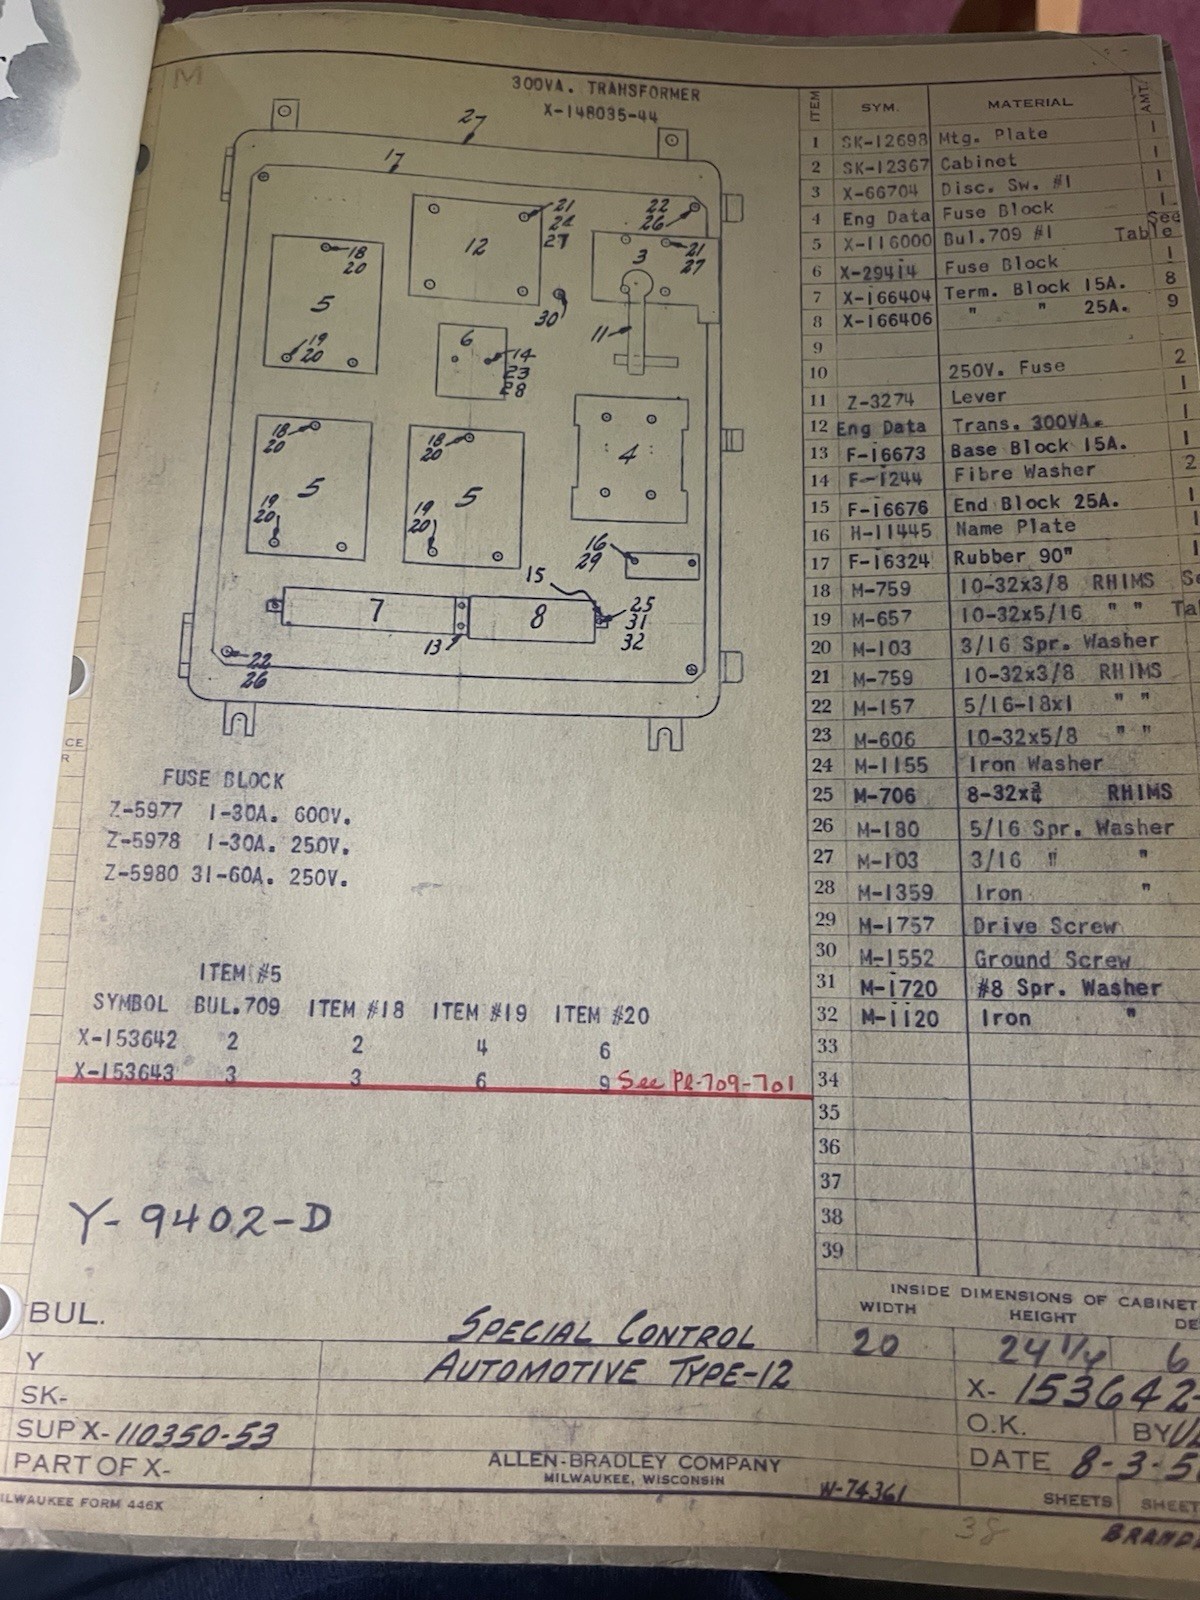 M
300VA. TRANSFORMER
X-148035-44
27
17
21
24
27
22
26
12
3
21
27
18
20
5
30
11
6
14
23
28
19
20
18
20
5
19
20
18
20
5
19
20
4
16
29
15
7
8
25
31
32
13
22
26
FUSE BLOCK
Z-5977 1-30A. 600V.
Z-5978 1-30A. 250V.
Z-5980 31-60A. 250V.
ITEM #5
SYMBOL BUL.709 ITEM #18 ITEM #19 ITEM #20
X-153642 2 2 4 6
X-153643 3 3 6 9 See Pl-709-701
Y-9402-D
ITEM SYM. MATERIAL AMT.
1 SK-12698 Mtg. Plate 1
2 SK-12367 Cabinet 1
3 X-66704 Disc. Sw. #1 1
4 Eng Data Fuse Block 1
5 X-116000 Bul.709 #1 See Table
6 X-29414 Fuse Block 1
7 X-166404 Term. Block 15A. 8
8 X-166406 " " 25A. 9
9
10 250V. Fuse 2
11 Z-3274 Lever 1
12 Eng Data Trans. 300VA. 1
13 F-16673 Base Block 15A. 1
14 F-1244 Fibre Washer 2
15 F-16676 End Block 25A. 1
16 H-11445 Name Plate 1
17 F-16324 Rubber 90" 1
18 M-759 10-32x3/8 RHIMS
19 M-657 10-32x5/16 " "
20 M-103 3/16 Spr. Washer
21 M-759 10-32x3/8 RHIMS
22 M-157 5/16-18x1 " "
23 M-606 10-32x5/8 " "
24 M-1155 Iron Washer
25 M-706 8-32x3/4 RHIMS
26 M-180 5/16 Spr. Washer
27 M-103 3/16 " "
28 M-1359 Iron "
29 M-1757 Drive Screw
30 M-1552 Ground Screw
31 M-1720 #8 Spr. Washer
32 M-1120 Iron "
33
34
35
36
37
38
39
INSIDE DIMENSIONS OF CABINET
WIDTH HEIGHT
20 24 1/4 6
BUL.
Y
SK-
SUP X-110350-53
PART OF X-
SPECIAL CONTROL
AUTOMOTIVE TYPE-12
ALLEN-BRADLEY COMPANY
MILWAUKEE, WISCONSIN
W-74361
X-153642-
O.K. BY
DATE 8-3-5
SHEETS SHEET
FORM 446X
38